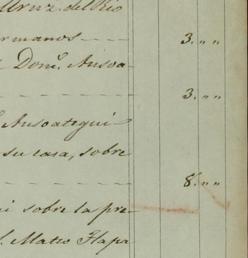 Cruz del Rio
ermanos 3. " "
Domo. Ansoa-
3. " "
Ansoategui
su casa, sobre
8. " "
i sobre la pre-
Mateo Flapa